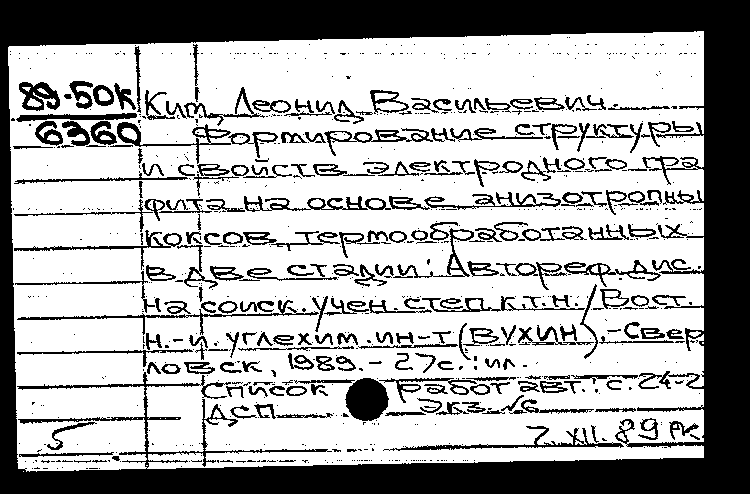 89-50к Кит, Леонид Васильевич.
6360 Формирование структуры
и свойств электродного гра
фита на основе анизотропны
коксов, термообработанных
в две стадии: Автореф. дис.
на соиск. учен. степ. к.т.н. / Вост.
н.-и. углехим. ин-т (ВУХИН). - Свер
ловск, 1989. - 27с.: ил.
Список работ авт.: с. 24-2
ДСП Экз. №6
5 7.XII.89 РК.